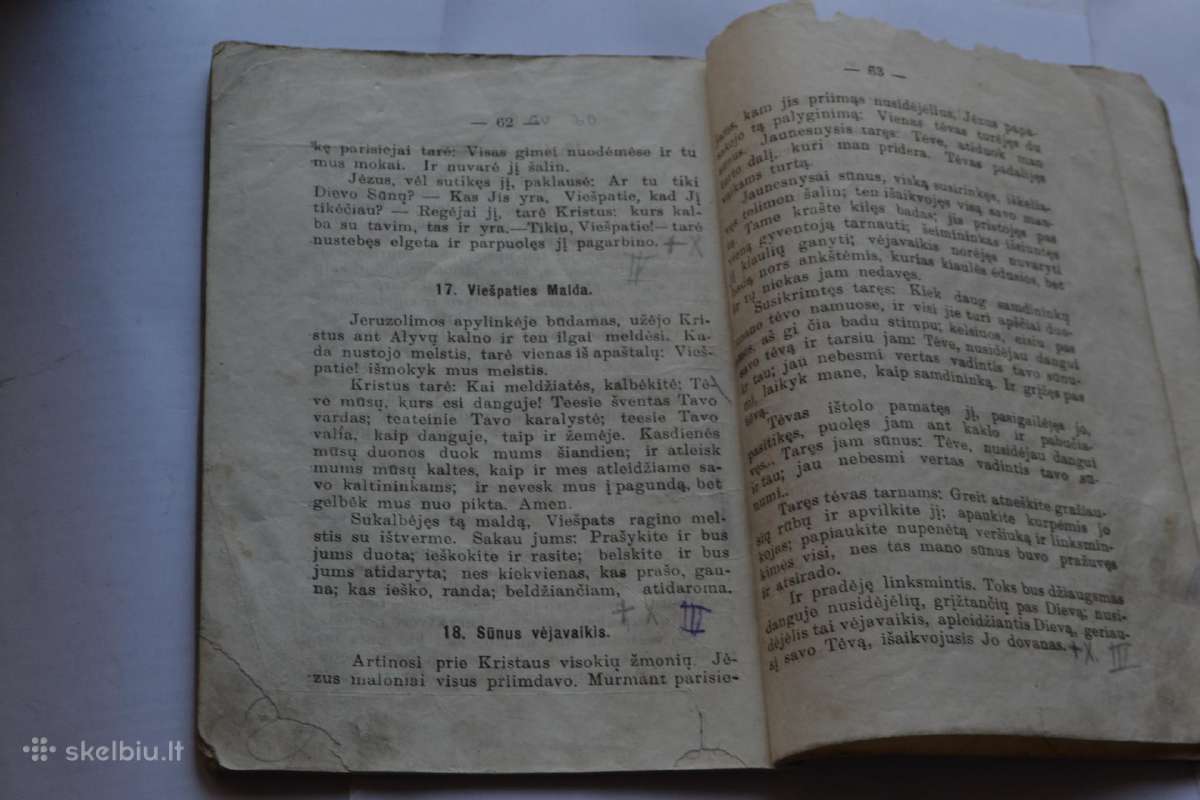 — 62 —
kę parisiejai tarė: Visas gimei nuodėmėse ir tu
mus mokai. Ir nuvarė jį šalin.
Jėzus, vėl sutikęs jį, paklausė: Ar tu tiki
Dievo Sūnų? — Kas Jis yra, Viešpatie, kad Jį
tikėčiau? — Regėjai jį, tarė Kristus: kurs kal-
ba su tavim, tas ir yra.—Tikiu, Viešpatie!— tarė
nustebęs elgeta ir parpuolęs jį pagarbino. + X
IV
17. Viešpaties Malda.
Jeruzolimos apylinkėje būdamas, užėjo Kri-
stus ant Alyvų kalno ir ten ilgai meldėsi. Ka-
da nustojo melstis, tarė vienas iš apaštalų: Vieš-
patie! išmokyk mus melstis.
Kristus tarė: Kai meldžiatės, kalbėkite: Tė-
ve mūsų, kurs esi danguje! Teesie šventas Tavo
vardas; teateinie Tavo karalystė; teesie Tavo
valia, kaip danguje, taip ir žemėje. Kasdienės
mūsų duonos duok mums šiandien; ir atleisk
mums mūsų kaltes, kaip ir mes atleidžiame sa-
vo kaltininkams; ir nevesk mus į pagundą, bet
gelbėk mus nuo pikta. Amen.
Sukalbėjęs tą maldą, Viešpats ragino mel-
stis su ištverme. Sakau jums: Prašykite ir bus
jums duota; ieškokite ir rasite; belskite ir bus
jums atidaryta; nes kiekvienas, kas prašo, gau-
na; kas ieško, randa; beldžiančiam, atidaroma.
+ X III
18. Sūnus vėjavaikis.
Artinosi prie Kristaus visokių žmonių. Jė-
zus maloniai visus priimdavo. Murmant parisie-
— 63 —
jams, kam jis priimąs nusidėjėlius, Jėzus papa-
sakojo tą palyginimą: Vienas tėvas turėjęs du
sūnus. Jaunesnysis taręs: Tėve, atiduok man
turto dalį, kuri man pridera. Tėvas padalijęs
vaikams turtą.
Jaunesnysai sūnus, viską susirinkęs, iškelia-
vęs tolimon šalin; ten išaikvojęs visą savo man-
tą. Tame krašte kilęs badas; jis pristojęs pas
vieną gyventoją tarnauti; šeimininkas išsiuntęs
jį kiaulių ganyti; vėjavaikis norėjęs nuvaryti
badą nors ankštėmis, kurias kiaulės ėdusios, bet
ir tų niekas jam nedavęs.
Susikrimtęs taręs: Kiek daug samdininkų
mano tėvo namuose, ir visi jie turi apščiai duo-
nos, aš gi čia badu stimpu; kelsiuos, eisiu pas
savo tėvą ir tarsiu jam: Tėve, nusidėjau dangui
ir tau; jau nebesmi vertas vadintis tavo sūnu-
mi, laikyk mane, kaip samdininką. Ir grįžęs pas
tėvą.
Tėvas ištolo pamatęs jį, pasigailėjęs jo,
pasitikęs, puolęs jam ant kaklo ir pabučia-
vęs.. Taręs jam sūnus: Tėve, nusidėjau dangui
ir tau; jau nebesmi vertas vadintis tavo sū-
numi..
Taręs tėvas tarnams: Greit atneškite gražiau-
sių rūbų ir apvilkite jį; apaukite kurpėmis jo
kojas; papiaukite nupenėtą veršiuką ir linksmin-
kimės visi, nes tas mano sūnus buvo pražuvęs
ir atsirado.
Ir pradėję linksmintis. Toks bus džiaugsmas
danguje nusidėjėlių, grįžtančių pas Dievą; nusi-
dėjėlis tai vėjavaikis, apleidžiantis Dievą, geriau-
sį savo Tėvą, išaikvojusis Jo dovanas. + X. III
skelbiu.lt